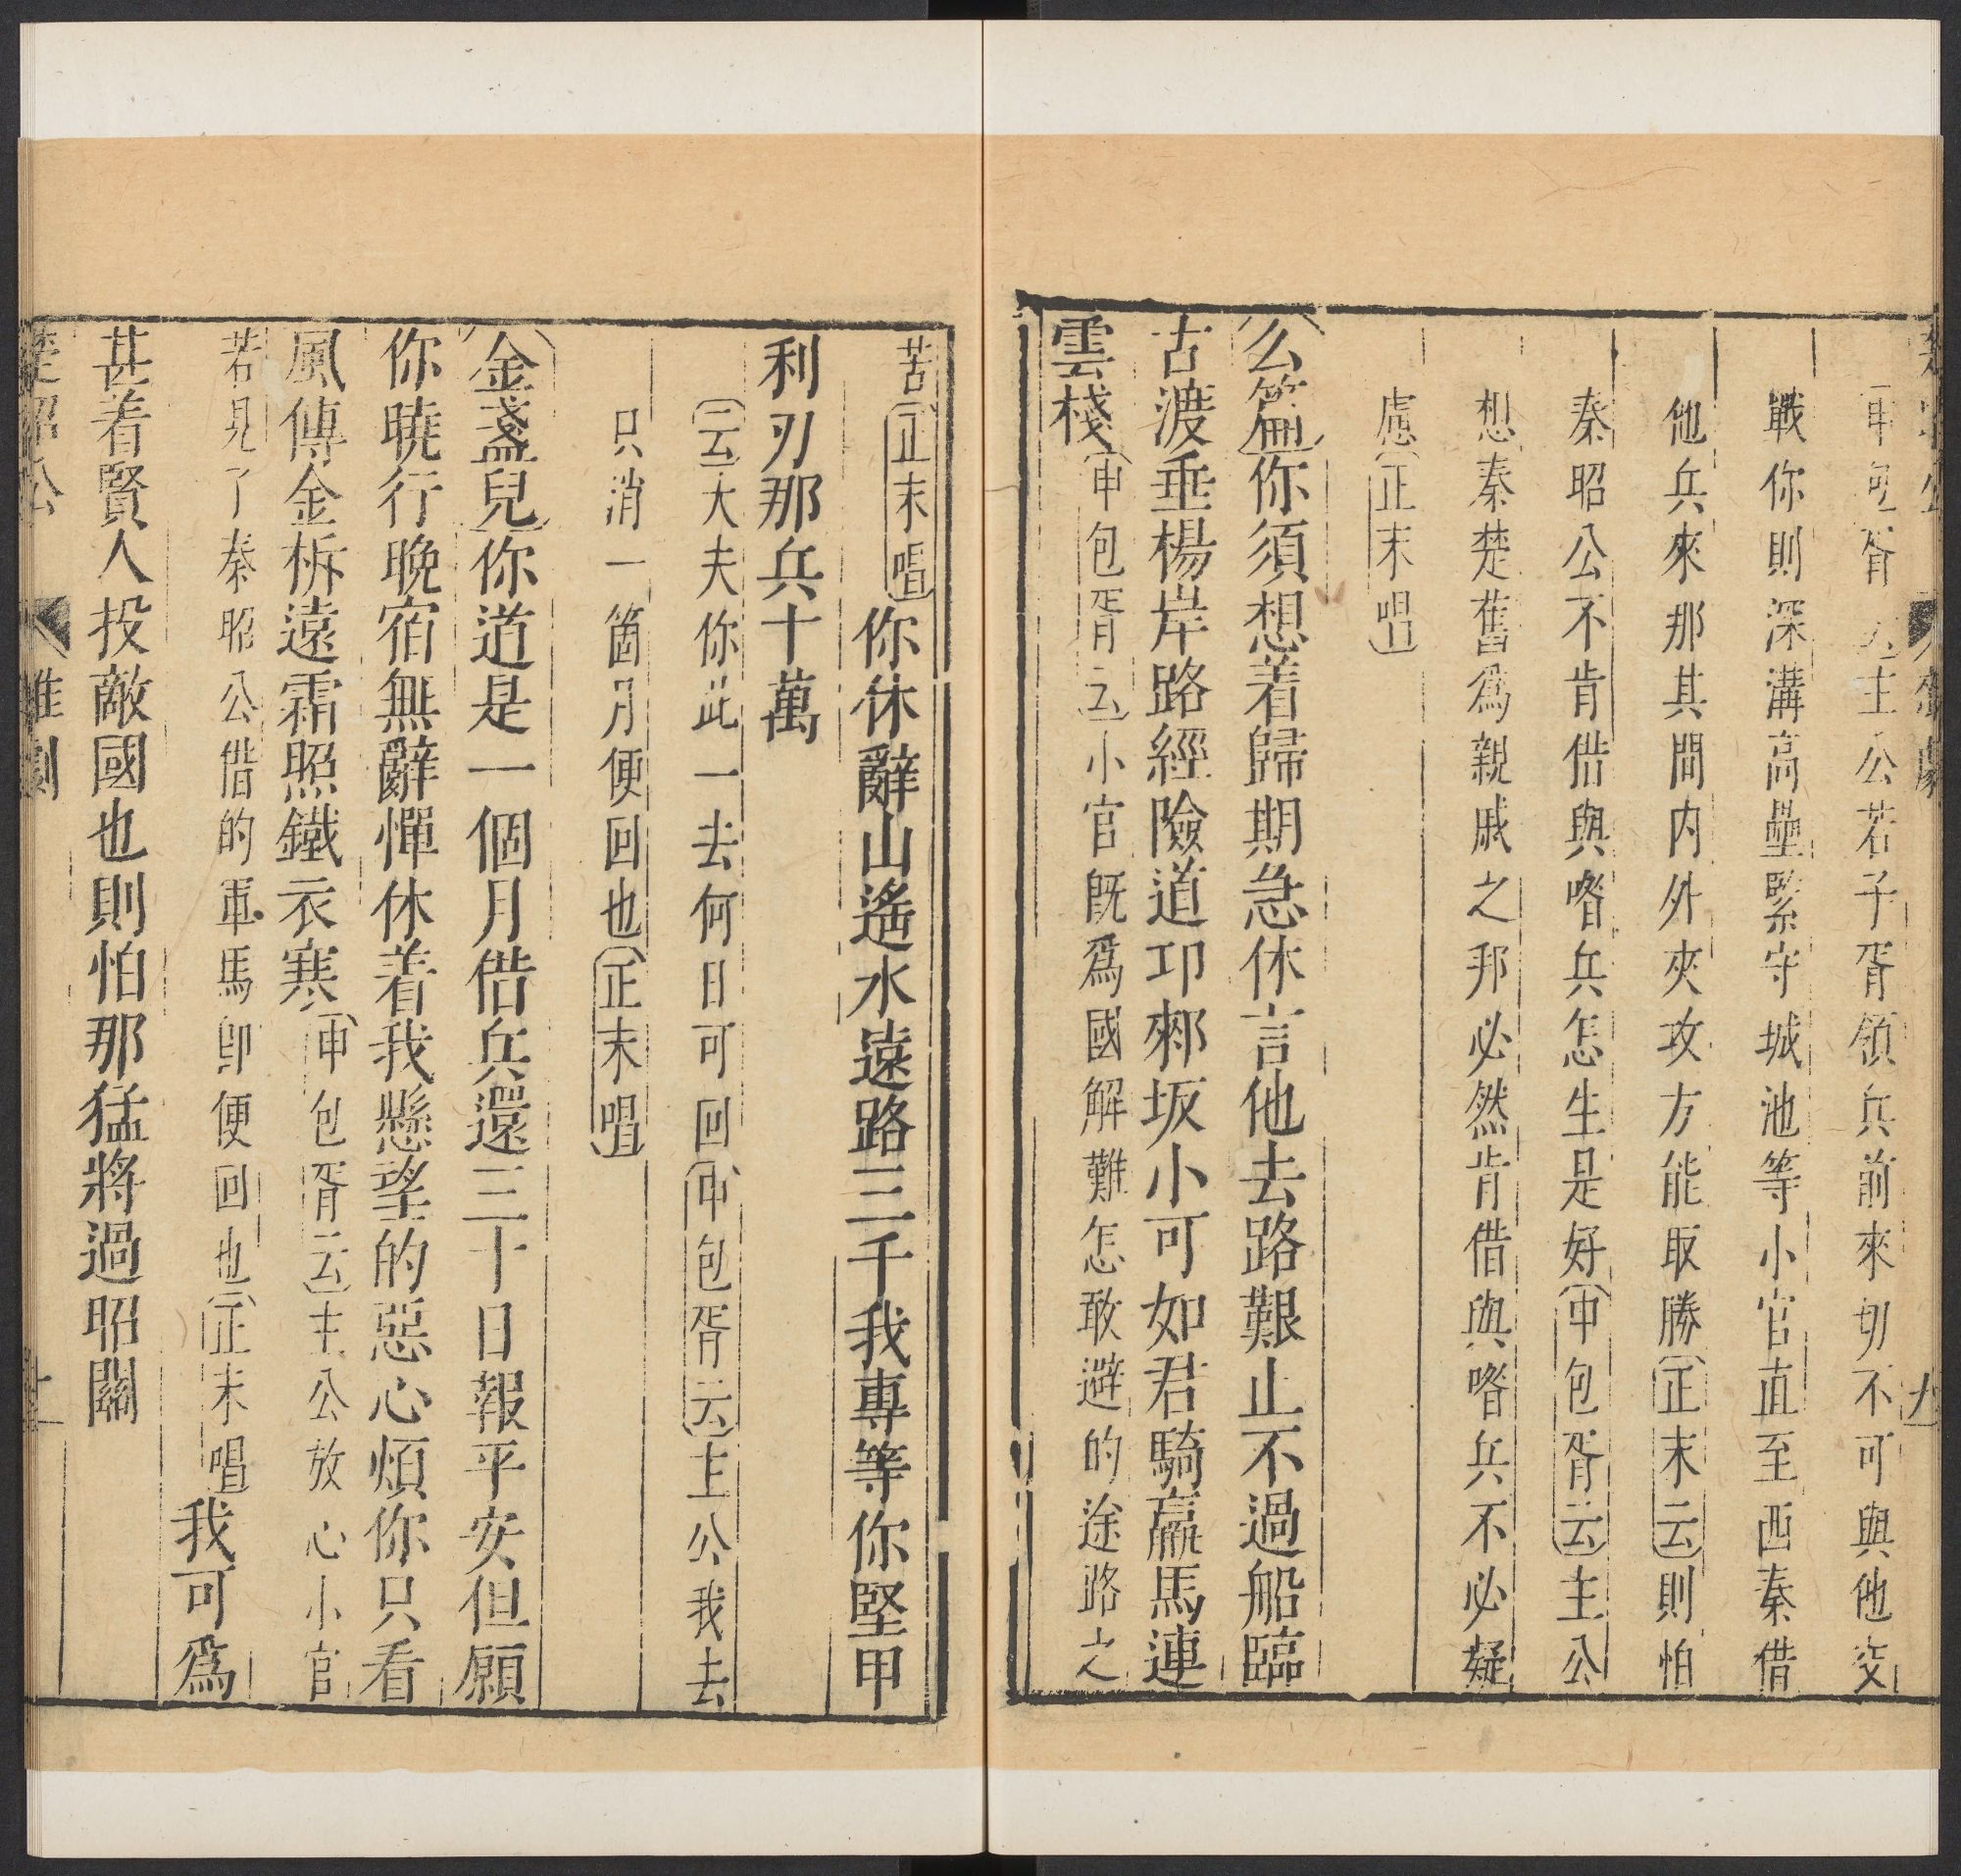 申包胥云主公若子胥領兵前來切不可與他交
戰你則深溝高壘緊守城池等小官直至西秦借
他兵來那其間內外夾攻方能取勝正末云則怕
秦昭公不肯借與喒兵怎生是好申包胥云主公
想秦楚舊爲親戚之邦必然肯借與喒兵不必疑
慮正末唱
么篇你須想着歸期急休言他去路艱止不過船臨
古渡垂楊岸路經險道邛郲坂小可如君騎羸馬連
雲棧申包胥云小官旣爲國解難怎敢避的途路之
苦正末唱你休辭山遙水遠路三千我專等你堅甲
利刃那兵十萬
云大夫你此一去何日可回申包胥云主公我去
只消一箇月便回也正末唱
金盞兒你道是一個月借兵還三十日報平安但願
你曉行晚宿無辭憚休着我懸望的惡心煩你只看
風傳金柝遠霜照鐵衣寒申包胥云主公放心小官
若見了秦昭公借的軍馬卽便回也正末唱我可爲
甚着賢人投敵國也則怕那猛將過昭關
楚昭公 雜劇